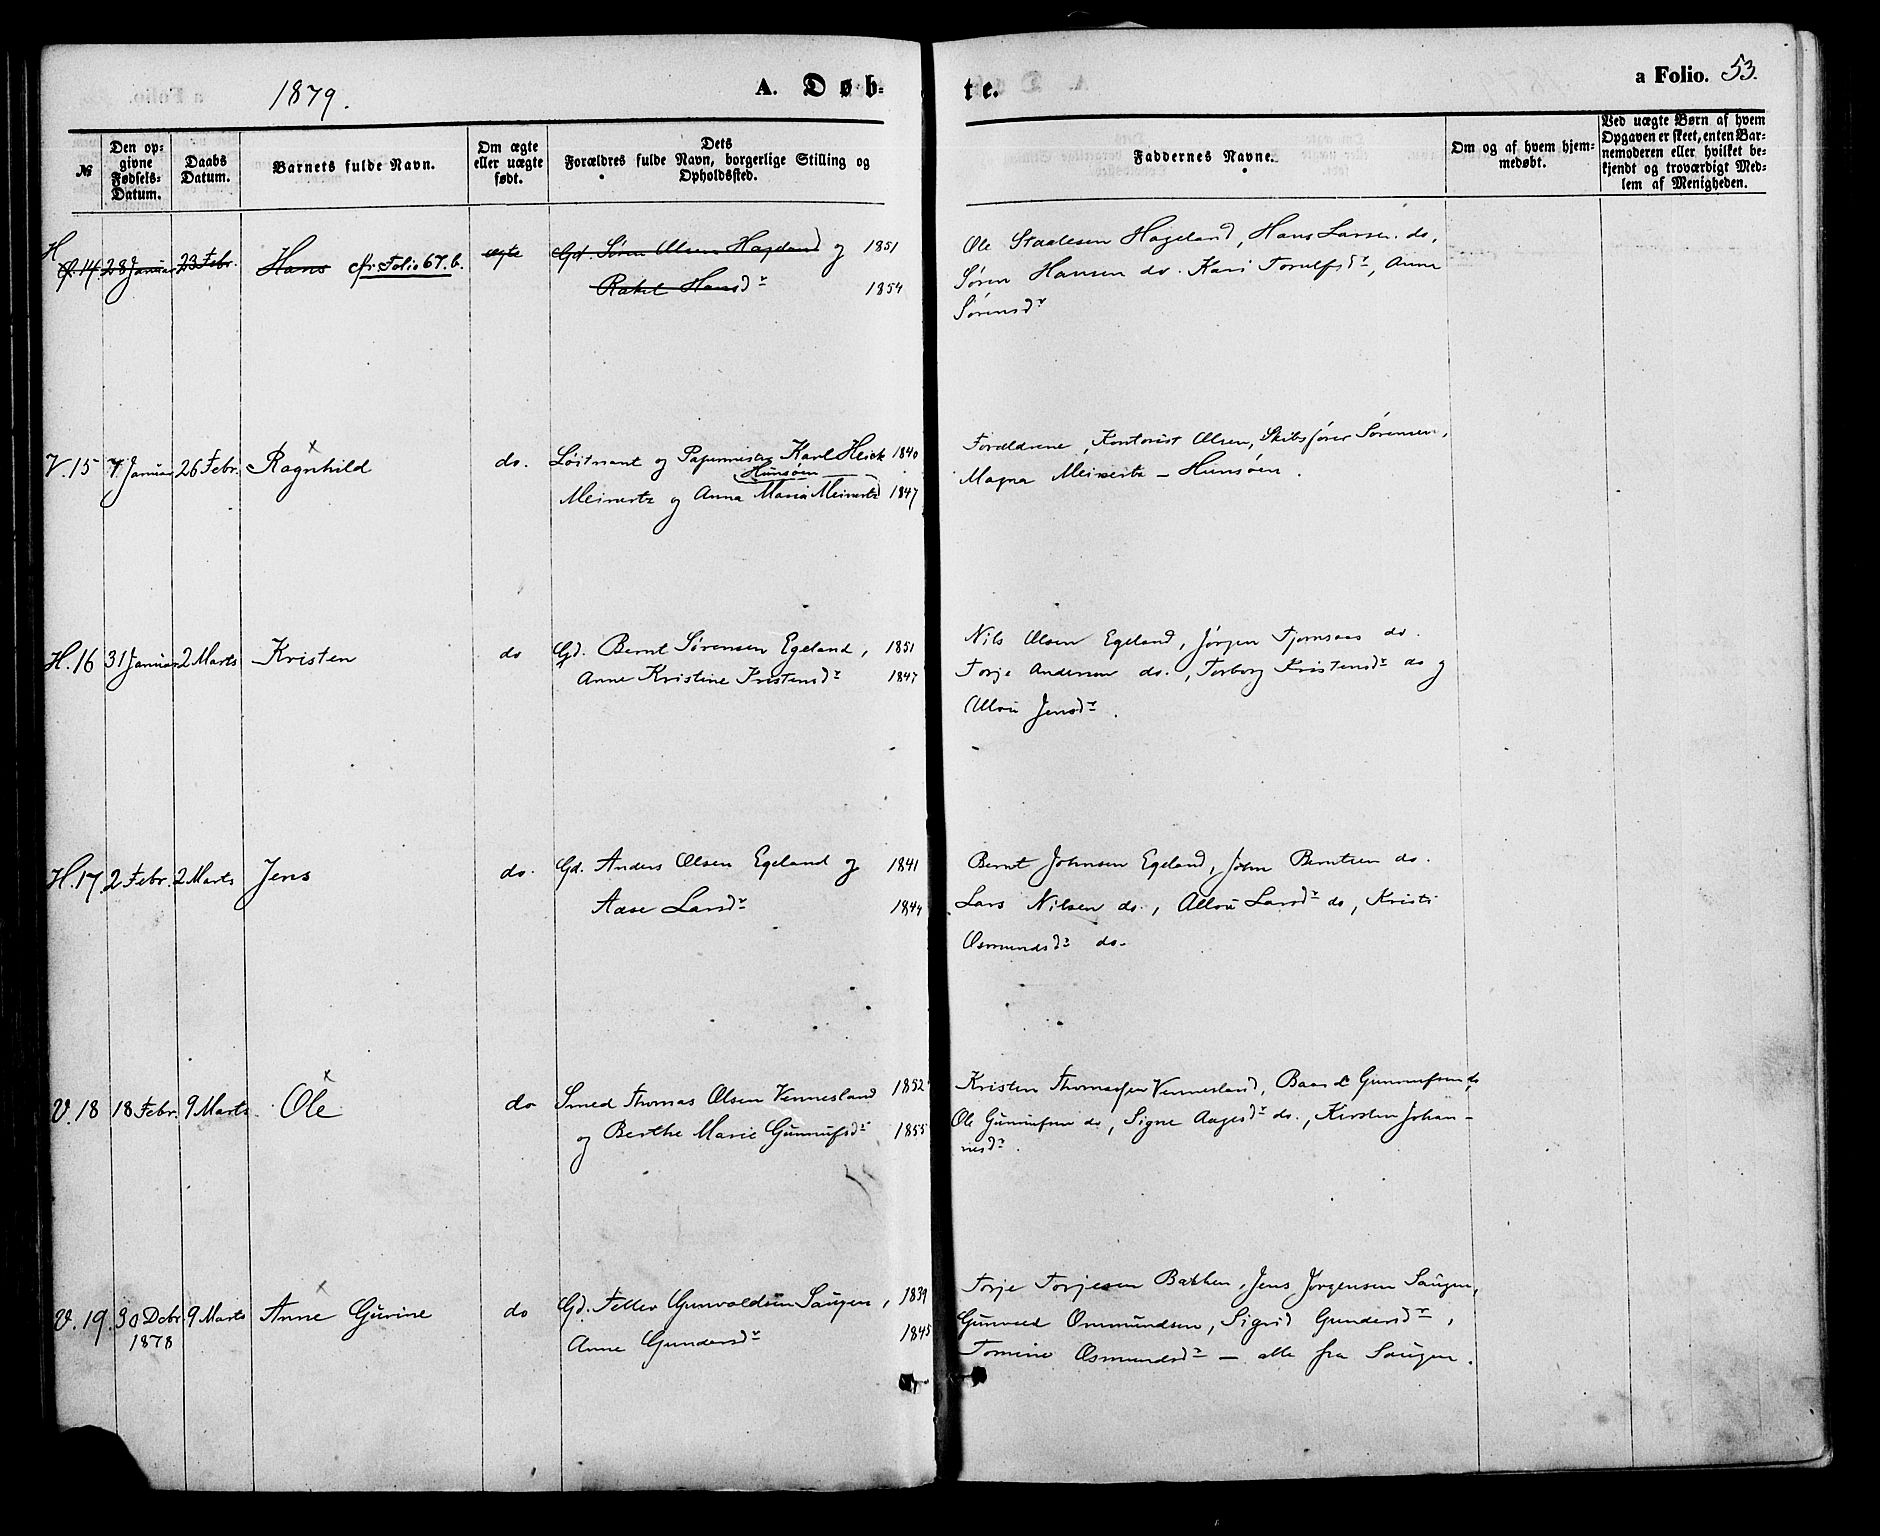 1879.
A. Døb-
te.
a Folio. 53.
№
Den op-
givne
Fødsels-
Datum.
Daabs
Datum.
Barnets fulde Navn.
Om ægte
eller uægte
født.
Dets
Forældres fulde Navn, borgerlige Stilling og
Opholdssted.
Faddernes Navne.
Om og af hvem hjem-
medøbt.
Ved uægte Børn af hvem
Opgaven er skeet, enten Bar-
nemoderen eller hvilket be-
kjendt og troværdigt Med-
lem af Menigheden.
H
14 28 Januar 23 Febr. Hans cfr Folio 67. b. ægte Gd. Søren Olsen Hageland og 1851
Rakel Hansdr 1854
Ole Staalesen Hageland, Hans Larsen do,
Søren Hansen do. Kari Torulfsdr, Anne
Sørensdr
V. 15 7 Januar 26 Febr. Ragnhild do. Løitnant og Papirmester Karl Heick 1840
Hunsøen
Meinertz og Anna Maria Meinertz 1847
Forældrene, Kontorist Olsen, Skibsfører Sørensen,
Magna Meinertz – Hunsøen.
H. 16 31 Januar 2 Marts Kristen do Gd. Bernt Sørensen Egeland, 1851
Anne Kristine Kristensdr 1847
Nils Olsen Egeland, Jørgen Tjomsaas do.
Torje Andersen do., Torborg Kristensdr do og
Jensdr.
H. 17. 2 Febr. 2 Marts Jens do. Gd. Anders Olsen Egeland og 1841
Aase Larsdr 1844
Bernt Johnsen Egeland, John Berntsen do.
Lars Nilsen do., Larsdr do, Kristi
Osmundsdr do.
V. 18 18 Febr. 9 Marts Ole do Smed Thomas Olsen Vennesland 1852
og Berthe Marie Gunnufsdr 1855
Kristen Thomassen Vennesland, Baard Gunnufsen do
Ole Gunnufsen do, Signe Aagesdr do., Kirsten Johan-
nesdr.
V. 19. 30 Debr 9 Marts Anne Gurine do Gd. Tellev Gunvaldsen Saugen, 1839
1878
Anne Gundersdr 1845
Torje Torjesen Bakken, Jens Jørgensen Saugen,
Ommundsen, Sigrid Gundersdr,
Tomine Osmundsdr – alle fra Saugen.